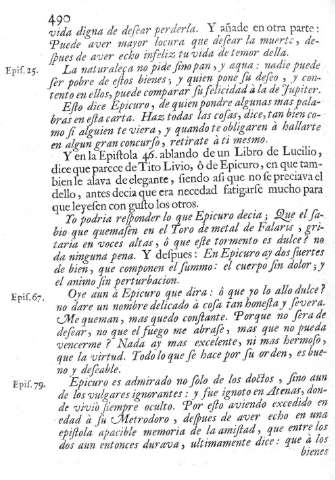 490
vida digna de desear perderla. Y añade en otra parte:
Puede aver mayor locura que desear la muerte, des-
pues de aver echo infeliz tu vida de temor della.
Epis. 25. La naturaleça no pide sino pan, y aqua: nadie puede
ser pobre de estos bienes; y quien pone su deseo, y con-
tento en ellos, puede comparar su felicidad à la de Jupiter.
Esto dice Epicuro, de quien pondre algunas mas pala-
bras en esta carta. Haz todas las cosas, dice, tan bien co-
mo si alguien te viera, y quando te obligaren à hallarte
en algun gran concurso, retirate à ti mesmo.
Y en la Epistola 46. ablando de un Libro de Lucilio,
dice que parece de Tito Livio, ò de Epicuro, en que tam-
bien le alava de elegante, siendo asi que no se preciava el
dello, antes decia que era necedad fatigarse mucho para
que leyesen con gusto los otros.
Yo podria responder lo que Epicuro decia; Que el sa-
bio que quemasen en el Toro de metal de Falaris, gri-
taria en voces altas, ò que este tormento es dulce? no
da ninguna pena. Y despues: En Epicuro ay dos suertes
de bien, que componen el summo: el cuerpo sin dolor, y
el animo sin perturbacion.
Epis. 67. Oye aun à Epicuro que dira: ò que yo lo allo dulce?
no dare un nombre delicado à cosa tan honesta y severa.
Me queman, mas quedo constante. Porque no sera de
desear, no que el fuego me abrase, mas que no pueda
vencerme? Nada ay mas excelente, ni mas hermoso,
que la virtud. Todo lo que se hace por su orden, es bue-
no y deseable.
Epis. 79. Epicuro es admirado no solo de los doctos, sino aun
de los vulgares ignorantes: y fue ignoto en Atenas, don-
de vivio siempre oculto. Por esto aviendo excedido en
edad à su Metrodoro, despues de aver echo en una
epistola apacible memoria de la amistad, que entre los
dos aun entonces durava, ultimamente dice: que à los
bienes